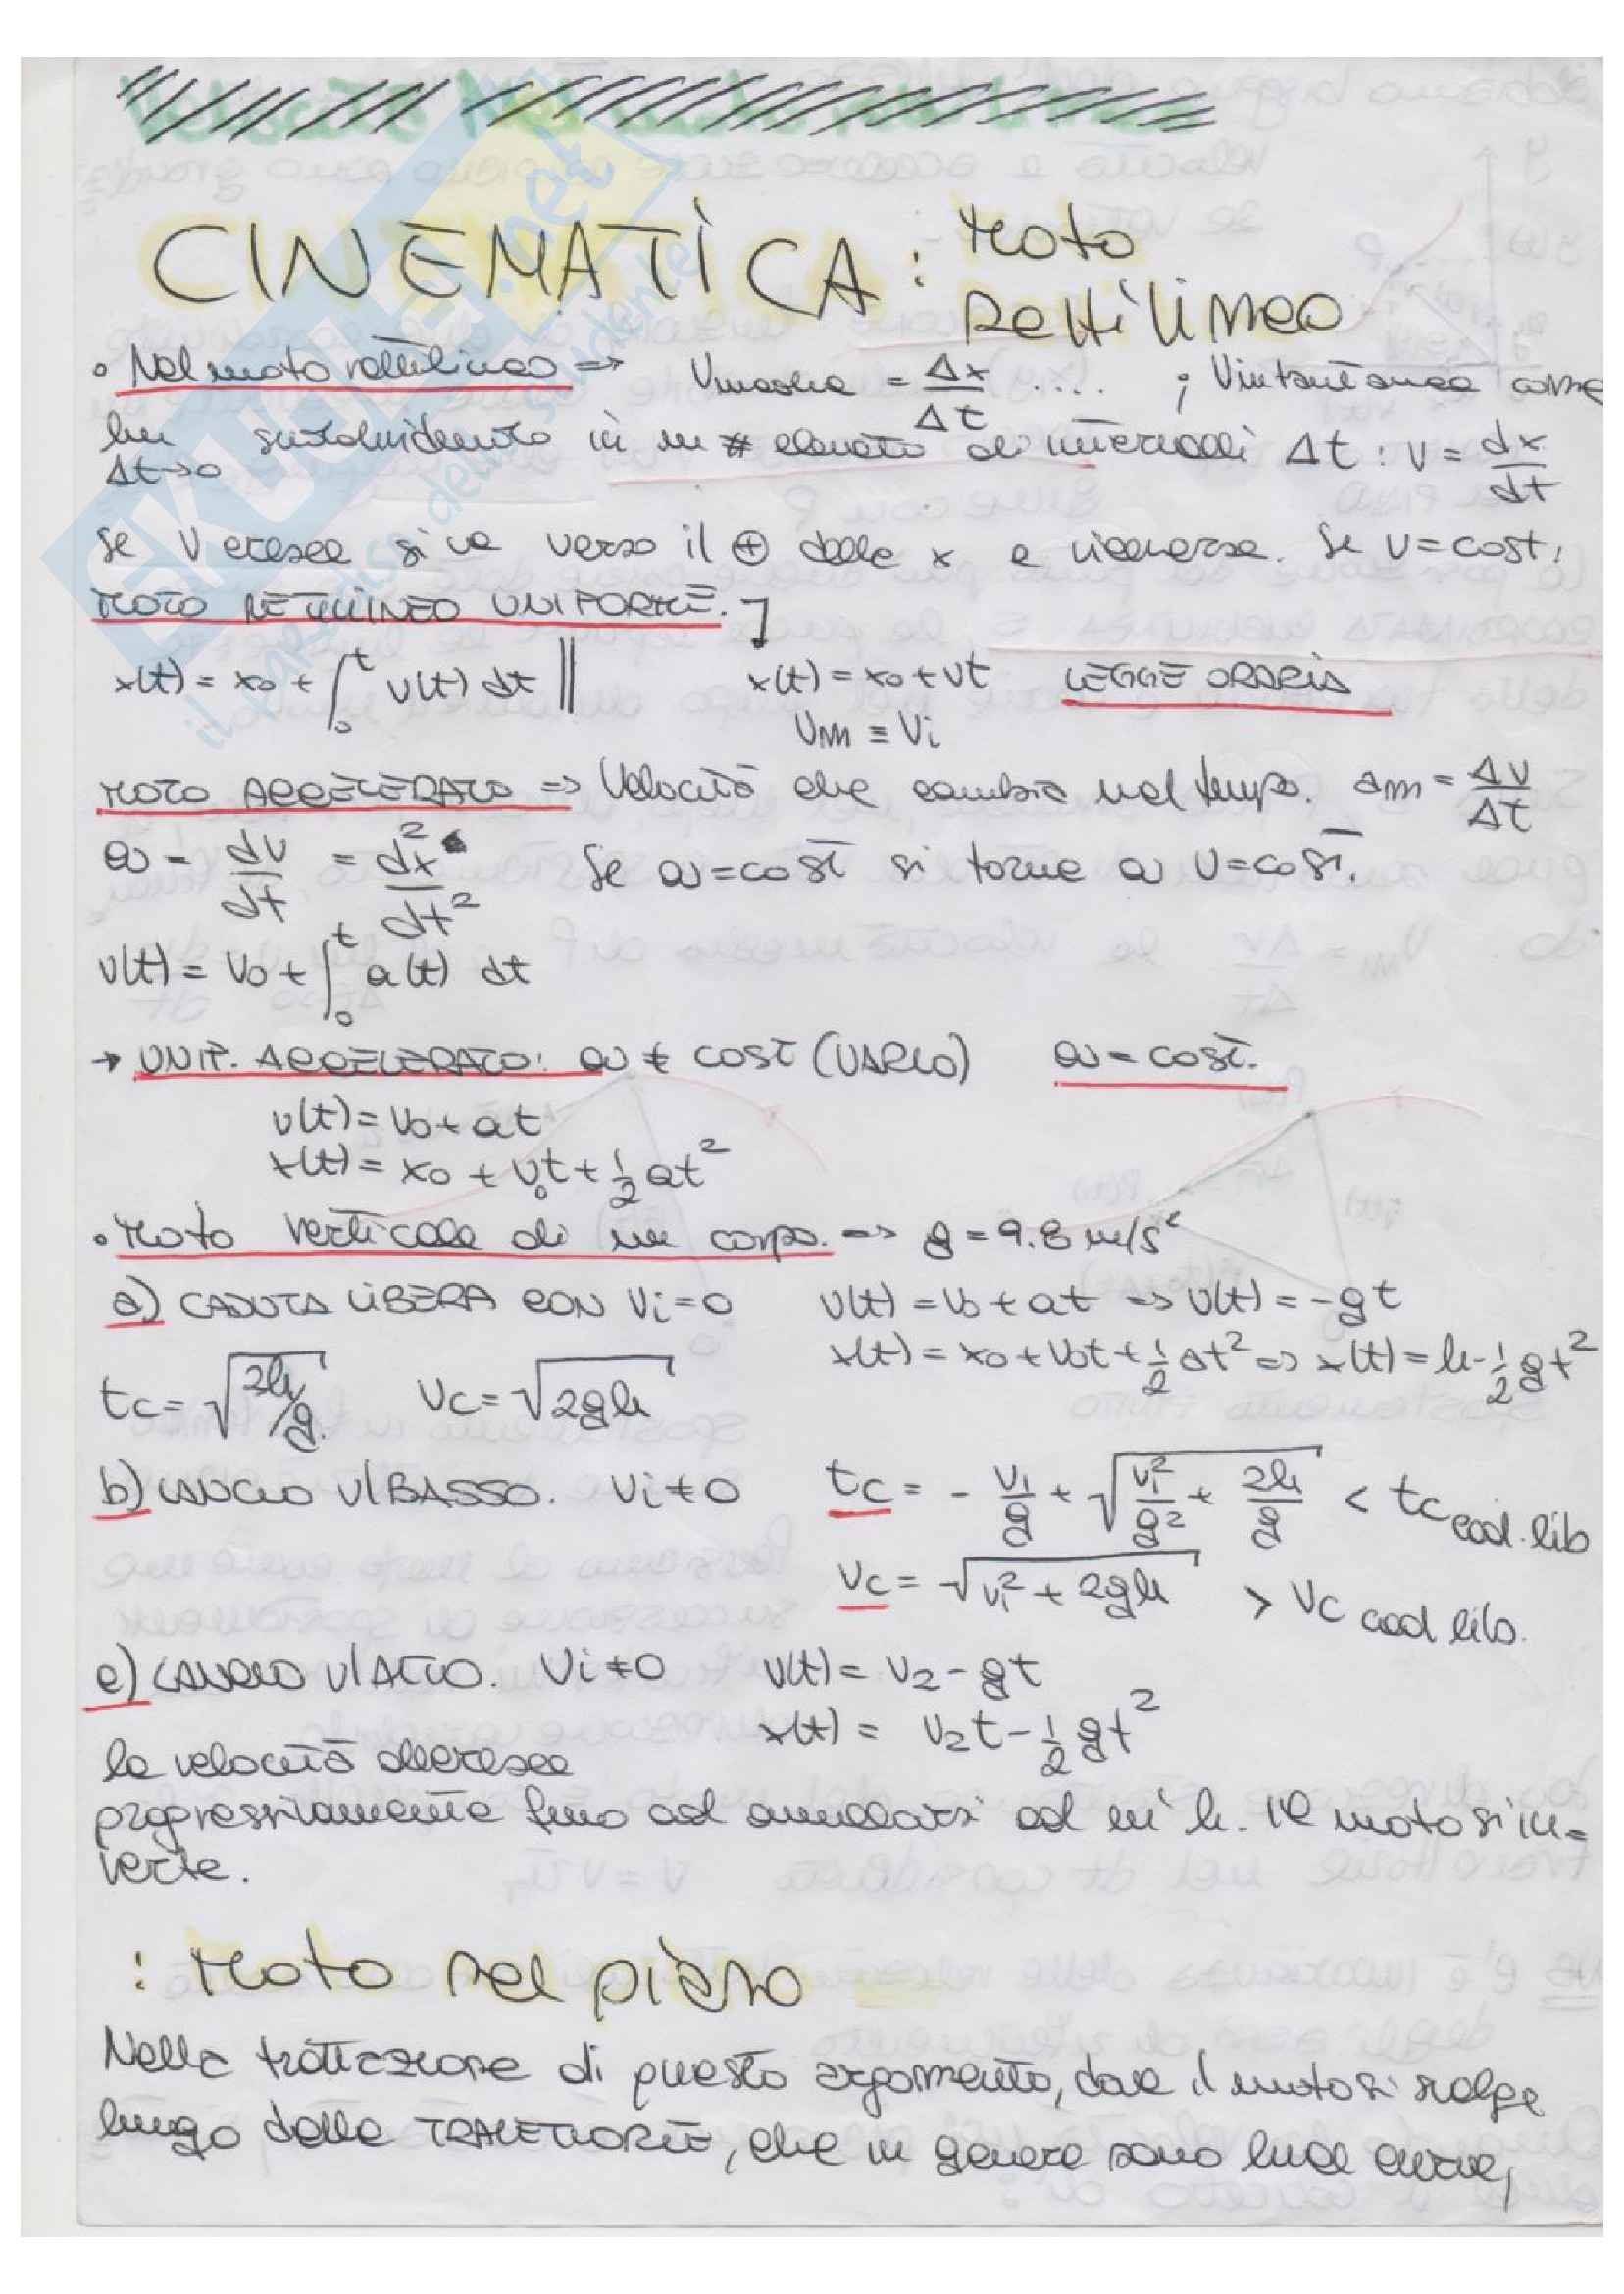 CINEMATICA: Moto
Rettilineo
• Nel moto rettilineo => Vmedia = Δx/Δt .... ; Vistantanea come
lim Δt→0 suddividendo in un # elevato di intervalli Δt : v = dx/dt
Se V cresce si va verso il ⊕ delle x e viceversa. Se v = cost,
MOTO RETTILINEO UNIFORME.
x(t) = x₀ + ∫₀ᵗ v(t) dt || x(t) = x₀ + vt LEGGE ORARIA
Vm ≡ Vi
MOTO ACCELERATO => Velocità che cambia nel tempo. am = Δv/Δt
a = dv/dt = d²x/dt² Se a = cost si torna a v = cost.
v(t) = v₀ + ∫₀ᵗ a(t) dt
→ UNIF. ACCELERATO: a ≠ cost (VARIO) a = cost.
v(t) = v₀ + at
x(t) = x₀ + v₀t + ½at²
• Moto verticale di un corpo. => g = 9.8 m/s²
a) CADUTA LIBERA CON Vi = 0 v(t) = v₀ + at => v(t) = -gt
x(t) = x₀ + v₀t + ½at² => x(t) = h - ½gt²
tc = √(2h/g) vc = √(2gh)
b) LANCIO V/BASSO. Vi ≠ 0 tc = - v₁/g + √(v₁²/g² + 2h/g) < tc cad. lib
vc = √(v₁² + 2gh) > vc cad lib.
c) LANCIO V/ALTO. Vi ≠ 0 v(t) = v₂ - gt
x(t) = v₂t - ½gt²
la velocità decresce
progressivamente fino ad annullarsi ad un' h. Il moto si in=
verte.
: Moto nel piano
Nella trattazione di questo argomento, dove il moto si svolge
lungo delle TRAIETTORIE, che in genere sono linee curve,
SKUOLA.net
il paradiso dello studente